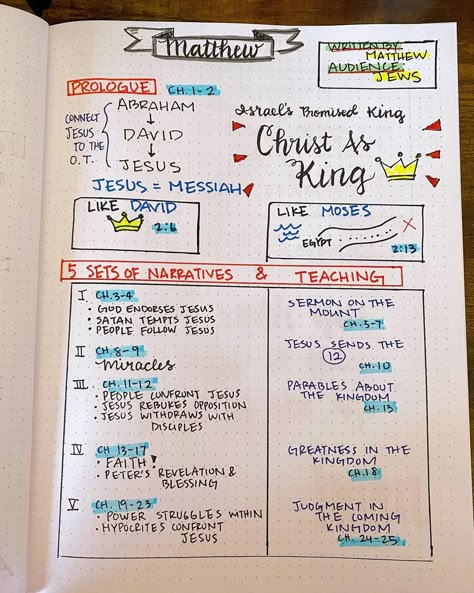 Matthew
WRITTEN BY
MATTHEW
AUDIENCE:
JEWS
PROLOGUE CH. 1-2
CONNECT
JESUS
TO THE
O.T.
ABRAHAM
↓
DAVID
↓
JESUS
JESUS = MESSIAH
Israel's Promised King
Christ As
King
LIKE DAVID
2:6
LIKE MOSES
EGYPT
2:13
5 SETS OF NARRATIVES & TEACHING
I CH. 3-4
• GOD ENDORSES JESUS
• SATAN TEMPTS JESUS
• PEOPLE FOLLOW JESUS
SERMON ON THE
MOUNT
CH. 5-7
II CH. 8-9
Miracles
JESUS SENDS THE
12
CH. 10
III. CH. 11-12
• PEOPLE CONFRONT JESUS
• JESUS REBUKES OPPOSITION
• JESUS WITHDRAWS WITH
DISCIPLES
PARABLES ABOUT
THE KINGDOM
CH. 13
IV CH 13-17
• FAITH!
• PETER'S REVELATION &
BLESSING
GREATNESS IN THE
KINGDOM
CH. 18
V CH. 19-23
• POWER STRUGGLES WITHIN
• HYPOCRITES CONFRONT
JESUS
JUDGMENT IN
THE COMING
KINGDOM
CH. 24-25